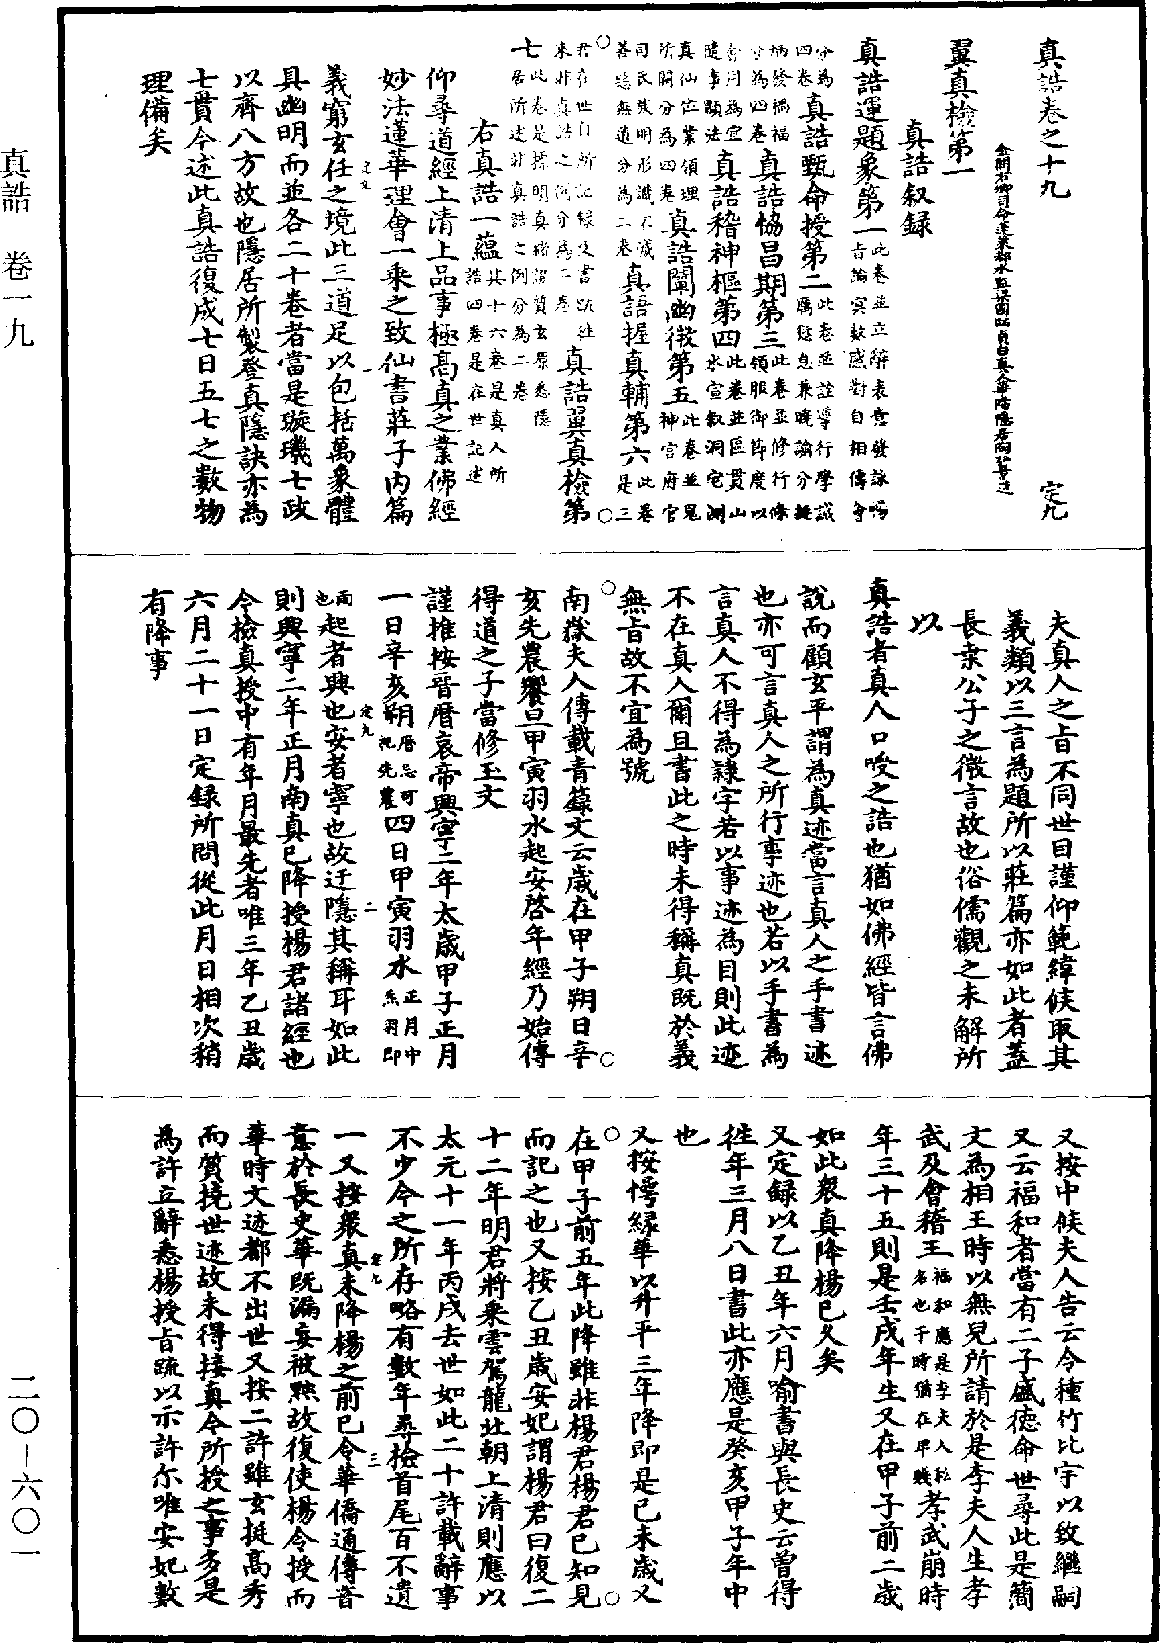 真誥卷之十九　定九
金闕右卿司命蓬萊都水監梁國師貞白真人華陽隱居陶弘景造
翼真檢第一
真誥叙錄
真誥運題象第一此卷並立辭表意發詠暢旨論冥數感對自相儔會分為四卷
真誥甄命授第二此卷並詮導行學誡厲愆怠兼曉諭分挺炳發禍福分為四卷
真誥協昌期第三此卷並修行條領服御節度以會用為宜隨事顯法
真誥稽神樞第四此卷並區貫山水宣叙洞宅測真仙位業領理所闕分為四卷
真誥闡幽微第五此卷並鬼神宮府官司氏族明形識不滅善惡無遺分為二卷
真誥握真輔第六此卷是三君在世自所記錄及書疏往來非真誥之例分為二卷
真誥翼真檢第七此卷是標明真緒證質玄原悉隱居所述非真誥之例分為二卷
右真誥一蘊其十六卷是真人所誥四卷是在世記述
仰尋道經上清上品事極高真之業佛經
妙法蓮華理會一乘之致仙書莊子内篇
義窮玄任之境此三道足以包括萬象體
具幽明而並各二十卷者當是璇璣七政
以齊八方故也隱居所製登真隱訣亦為
七貫今述此真誥復成七日五七之數物
理備矣
夫真人之旨不同世目謹仰範緯候取其
義類以三言為題所以莊篇亦如此者蓋
長桑公子之微言故也俗儒觀之未解所
以
真誥者真人口唆之誥也猶如佛經皆言佛
說而顧玄平謂為真迹當言真人之手書迹
也亦可言真人之所行事迹也若以手書為
言真人不得為隸字若以事迹為目則此迹
不在真人爾且書此之時未得稱真既於義
無旨故不宜為號
南嶽夫人傳載青籙文云歲在甲子朔日辛
亥先農饗旦甲寅羽水起安啓年經乃始傳
得道之子當修玉文
謹推按晉曆哀帝興寧二年太歲甲子正月
一日辛亥朔曆忌可祀先農四日甲寅羽水正月中炁羽即
雨也起者興也安者寧也故迂隱其稱耳如此
則興寧二年正月南真已降授楊君諸經也
令檢真授中有年月最先者唯三年乙丑歲
六月二十一日定錄所問從此月日相次稍
有降事
又按中候夫人告云令種竹比宇以致繼嗣
又云福和者當有二子盛德命世尋此是簡
文為相王時以無兒所請於是李夫人生孝
武及會稽王福和應是李夫人私名也于時猶在卑賤孝武崩時
年三十五則是壬戌年生又在甲子前二歲
如此衆真降楊已久矣
又定録以乙丑年六月喻書與長史云曾得
徃年三月八日書此亦應是癸亥甲子年中
也
又按愕緑華以升平三年降即是己未歲又
在甲子前五年此降雖非楊君楊君已知見
而記之也又按乙丑歲安妃謂楊君曰復二
十二年明君將乘雲駕龍北朝上清則應以
太元十一年丙戌去世如此二十許載辭事
不少今之所存略有數年尋檢首尾百不遺
一又按衆真未降楊之前已令華僑通傳音
意於長史華既漏妄被黜故復使楊令授而
華時文迹都不出世又按二許雖玄挺高秀
而質撓世迹故未得接真今所授之事多是
為許立辭悉楊授旨疏以示許尔唯安妃數
真誥　卷一九
二〇－六〇一